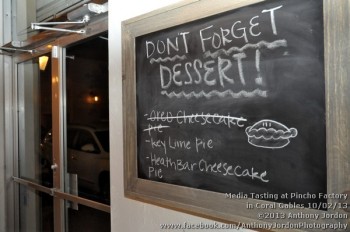 DONT FORGET
DESSERT!
- Oreo Cheesecake
Pie
- Key Lime Pie
- Heath Bar Cheesecake
Pie
Media Tasting at Pincho Factory
in Coral Gables 10/02/13
©2013 Anthony Jordon
www.facebook.com/AnthonyJordonPhotography